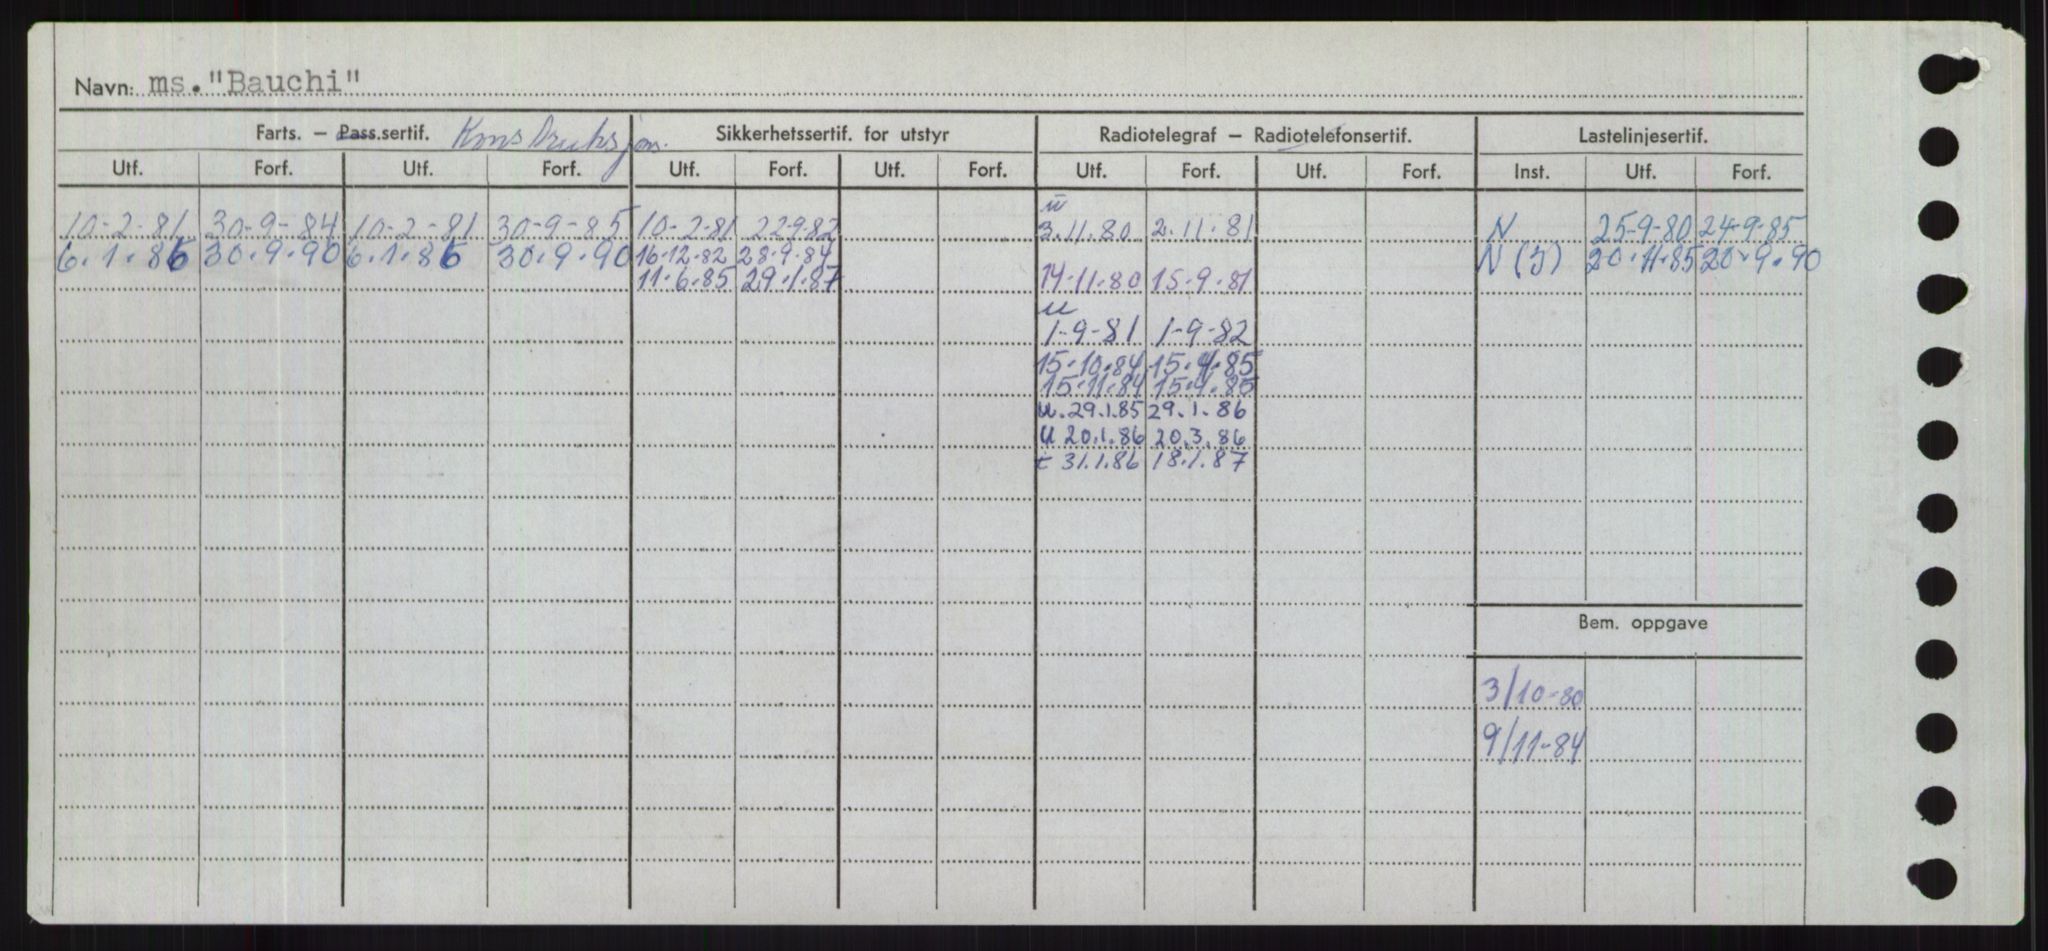 Navn: ms. "Bauchi"
Farts. – Pass.sertif. Konstruksjon. Sikkerhetssertif. for utstyr Radiotelegraf – Radiotelefonsertif. Lastelinjesertif.
Utf. Forf. Utf. Forf. Utf. Forf. Utf. Forf. Utf. Forf. Utf. Forf. Inst. Utf. Forf.
u
10-2-81 30-9-84 10-2-81 30-9-85 10-2-81 22-9-82 3.11.80 2.11.81 N 25-9-80 24-9-85
6.1.86 30.9.90 6.1.86 30.9.90 16-12-82 28-9-84 N (J) 20.11.85 20.9.90
11.6.85 29.1.87 14.11.80 15.9.81
u
1-9-81 1-9-82
15.10.84 15.4.85
15.11.84 15.4.85
u. 29.1.85 29.1.86
u 20.1.86 20.3.86
t 31.1.86 18.1.87
Bem. oppgave
3/10-80
9/11-84